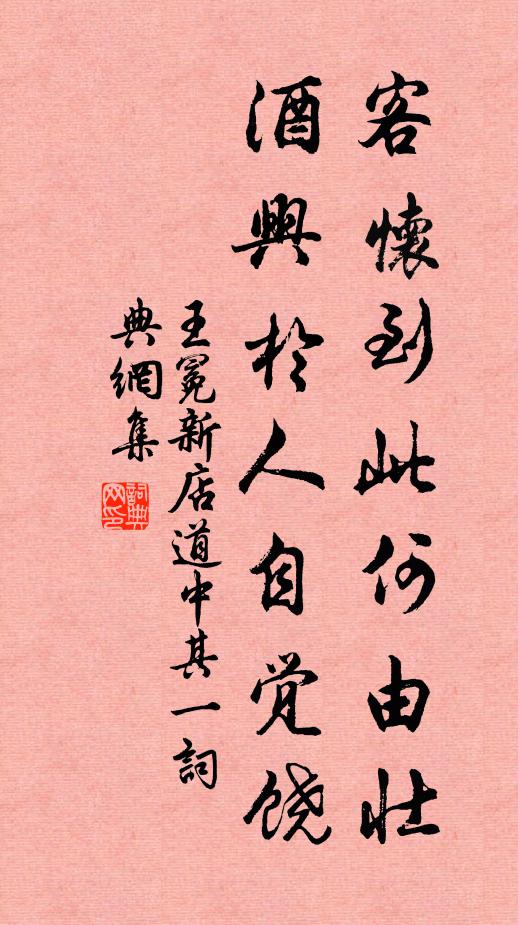 客懷到此何由壯
酒興於人自觉饶
王冕新店道中其一詞
典網集
詞典网印